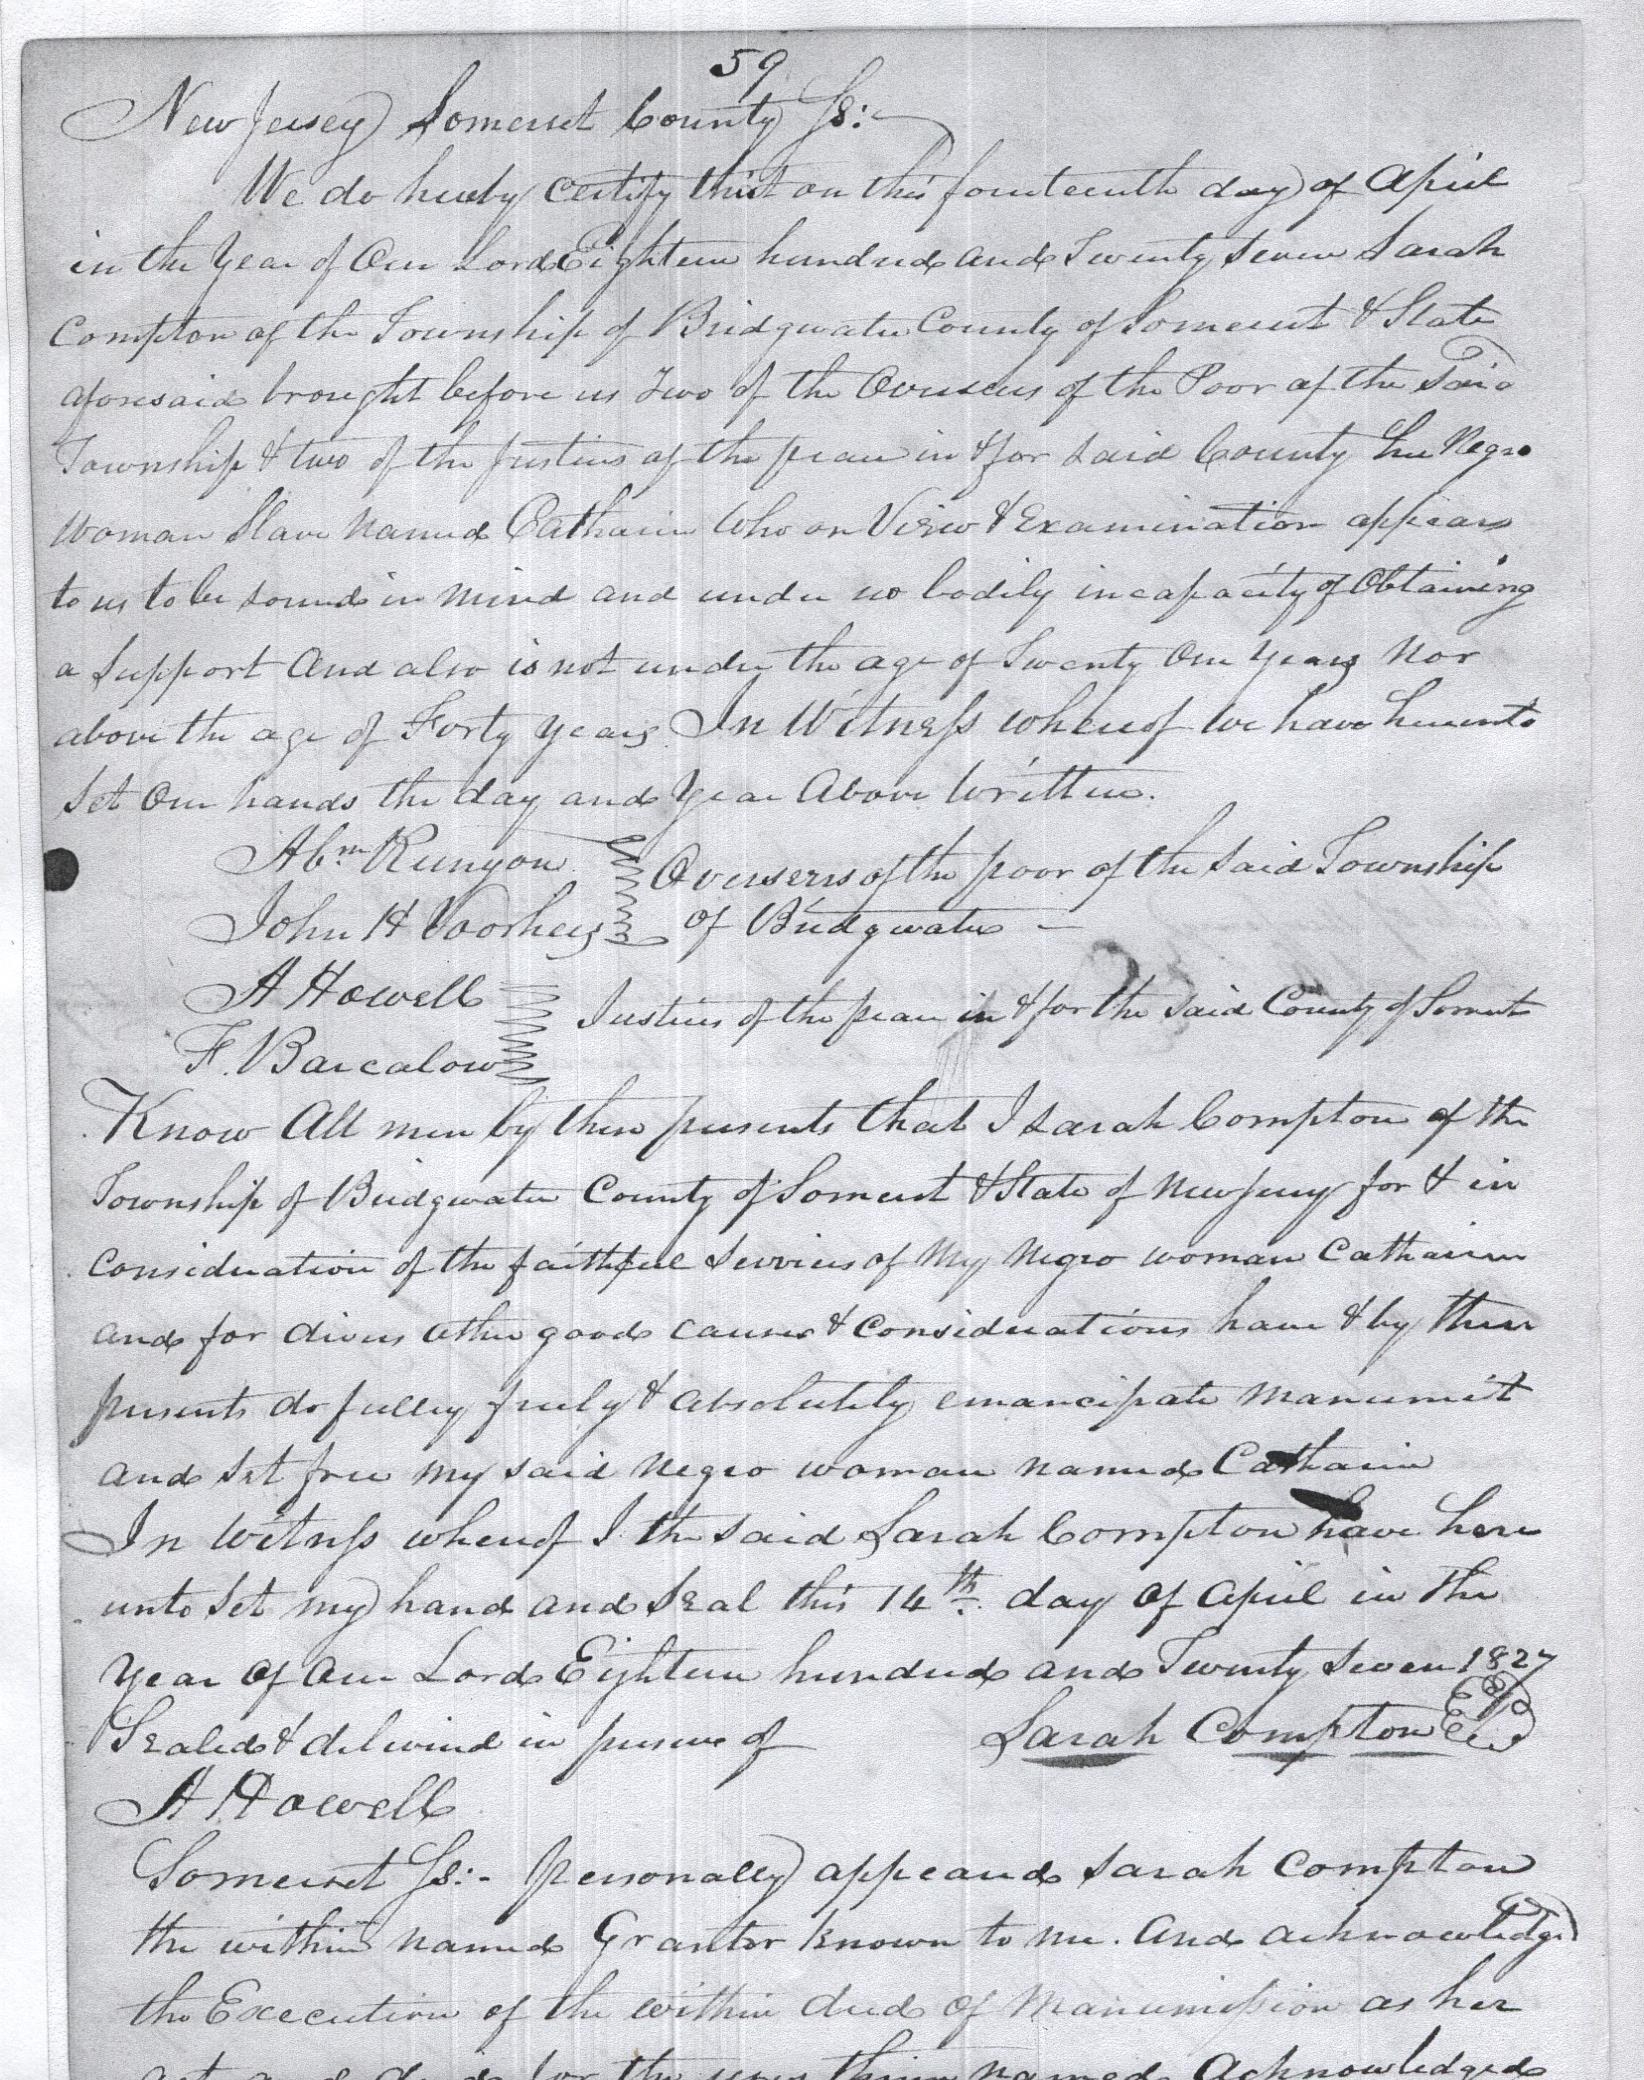 59
New Jersey Somerset County Ss:
We do hereby certify that on this fourteenth day of April
in the Year of Our Lord Eighteen hundred and Twenty Seven Sarah
Compton of the Township of Bridgwater County of Somerset & State
aforesaid brought before us Two of the Overseers of the Poor of the Said
Township & two of the justices of the peace in & for said County her Negro
Woman Slave Named Catharine Who on View & Examination appears
to us to be sound in Mind and under no bodily incapacity of Obtaining
a Support And also is not under the age of Twenty One Years Nor
above the age of Forty Years. In Witness whereof we have hereunto
Set Our hands the day and Year Above Written.
Abm Runyon Overseers of the poor of the Said Township
John H Voorhees of Bridgwater —
A Howell Justices of the peace in & for the Said County of Somerset
F. Barcalow
Know All men by these presents that I Sarah Compton of the
Township of Bridgwater County of Somerset & State of New Jersey for & in
Consideration of the faithful Services of My Negro woman Catharine
and for divers other good causes & Considerations have & by these
presents do fully freely & absolutely emancipate Manumit
and Set free My said Negro woman named Catharine
In Witness whereof I the Said Sarah Compton have here
unto Set my hand and Seal this 14th day of April in the
Year of Our Lord Eighteen hundred and Twenty Seven 1827
Sealed & delivered in presence of Sarah Compton
A Howell
Somerset Ss:- Personally appeared Sarah Compton
the within named Grantor known to me. And acknowledged
the Execution of the within deed of Manumission as her
act and deed for the uses therein named Acknowledged